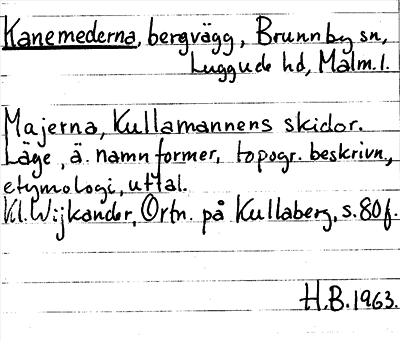 Kanemederna, bergvägg, Brunnby sn,
Luggude hd, Malm.l.
Majerna, Kullamannens skidor.
Läge, ä. namnformer, topogr. beskrivn.,
etymologi, uttal.
Kl. Wijkander, Ortn. på Kullaberg, s. 80f.
H.B. 1963.